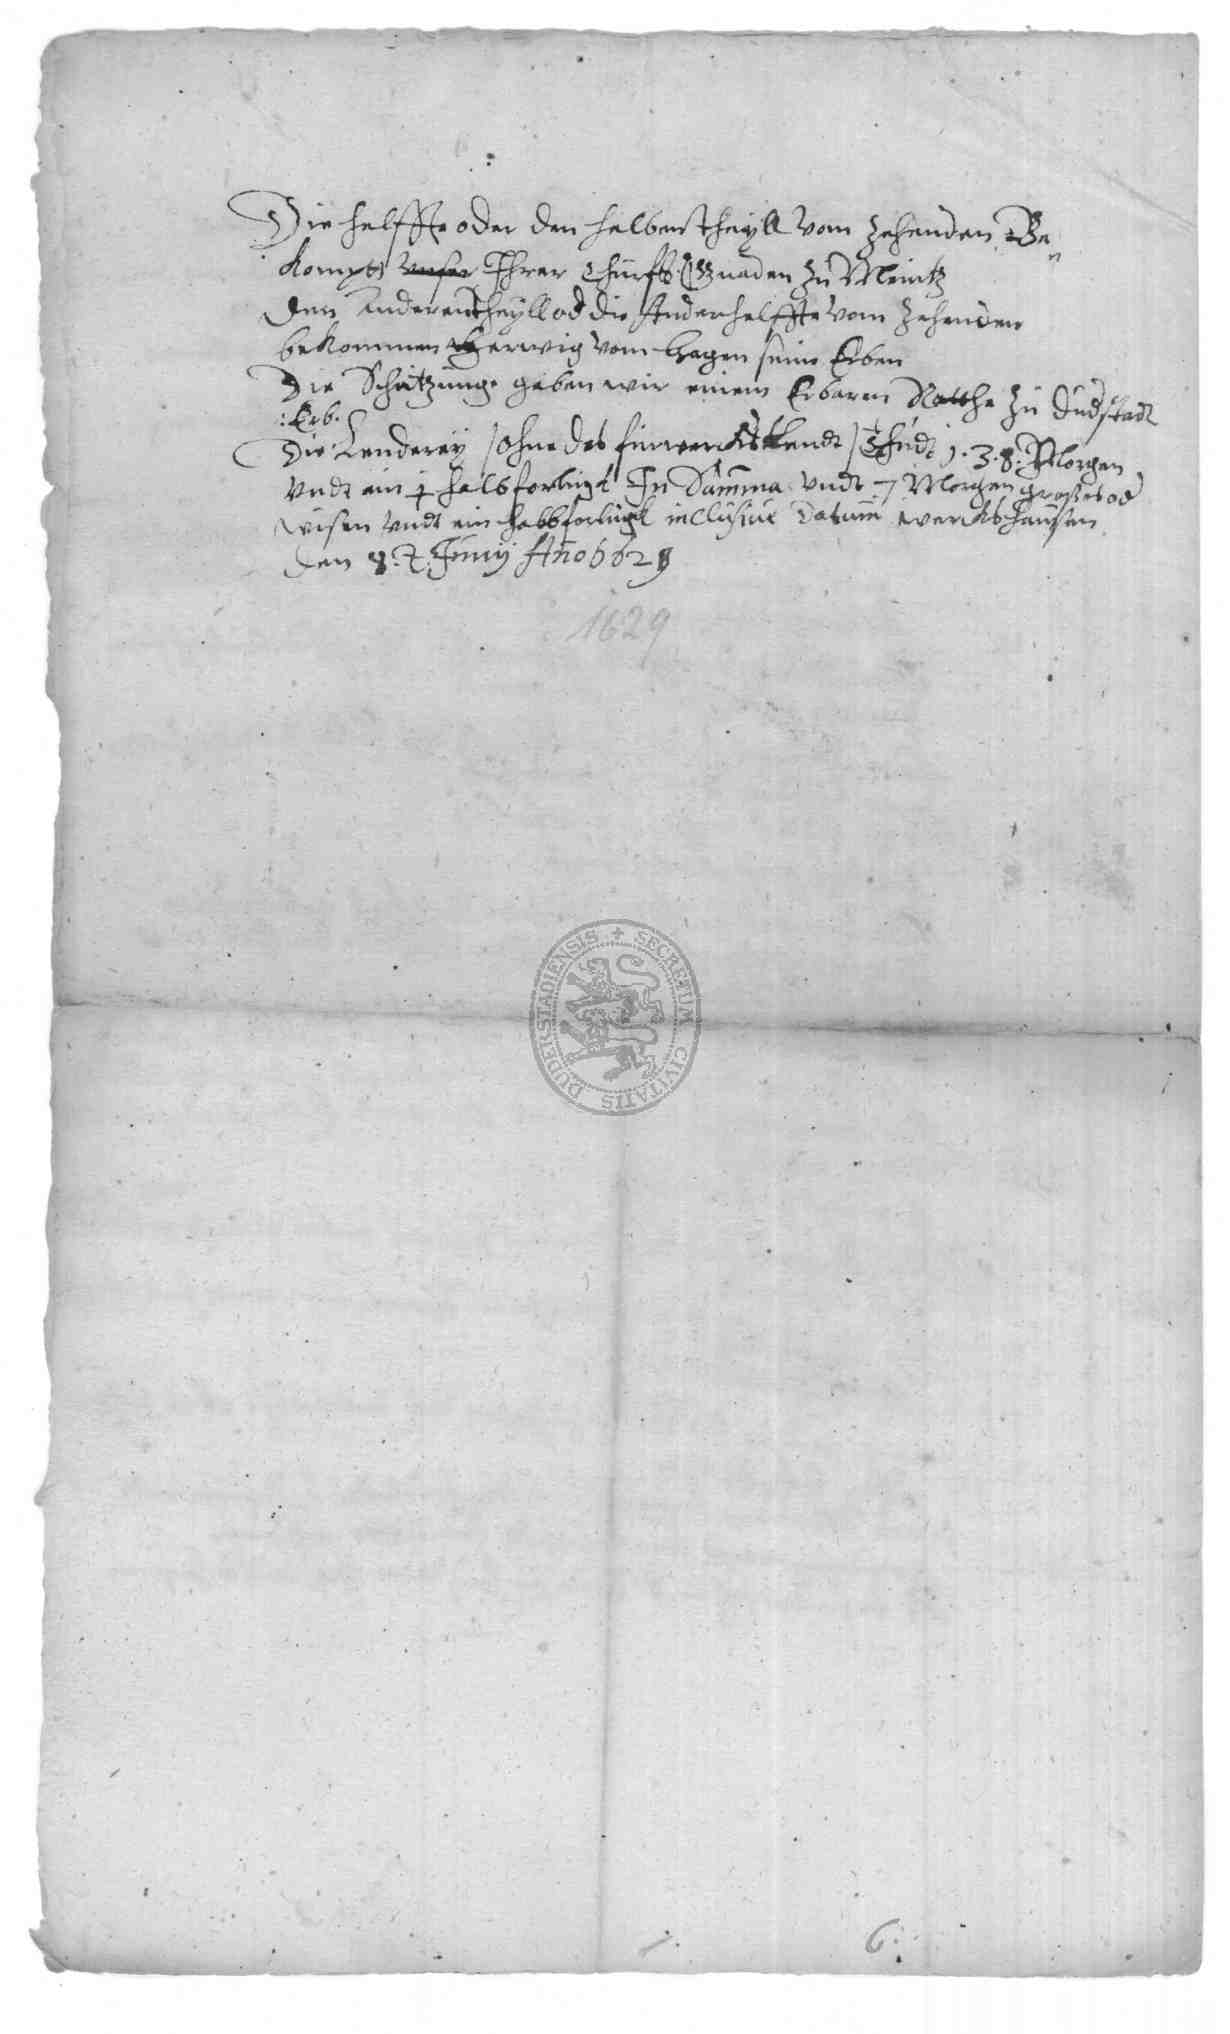 Die helffte oder den halben theyll vom Zehenden Be„
kompt unser Ihrer Churfs. Gnaden zu Meintz
den anderen theyll od die Ander helffte vom Zehenden
bekommen Herwig vom Hagen seine Erben
Die Schatzung geben wir einem Erbaren Rathe zu Dudstadt
:Erb.
Die Lenderey / ohne des furwercks lendt / thudt 1.3.8. Morgen
Undt ein halb forlingk In Summa undt 7 Morgen großes od
wisen undt ein halbforlingk inclusiue Datum Werckshausen
den 8. t. Juny Ano 1629
1629
SECRETUM CIVITATIS DUDERSTADIENSIS +
6.